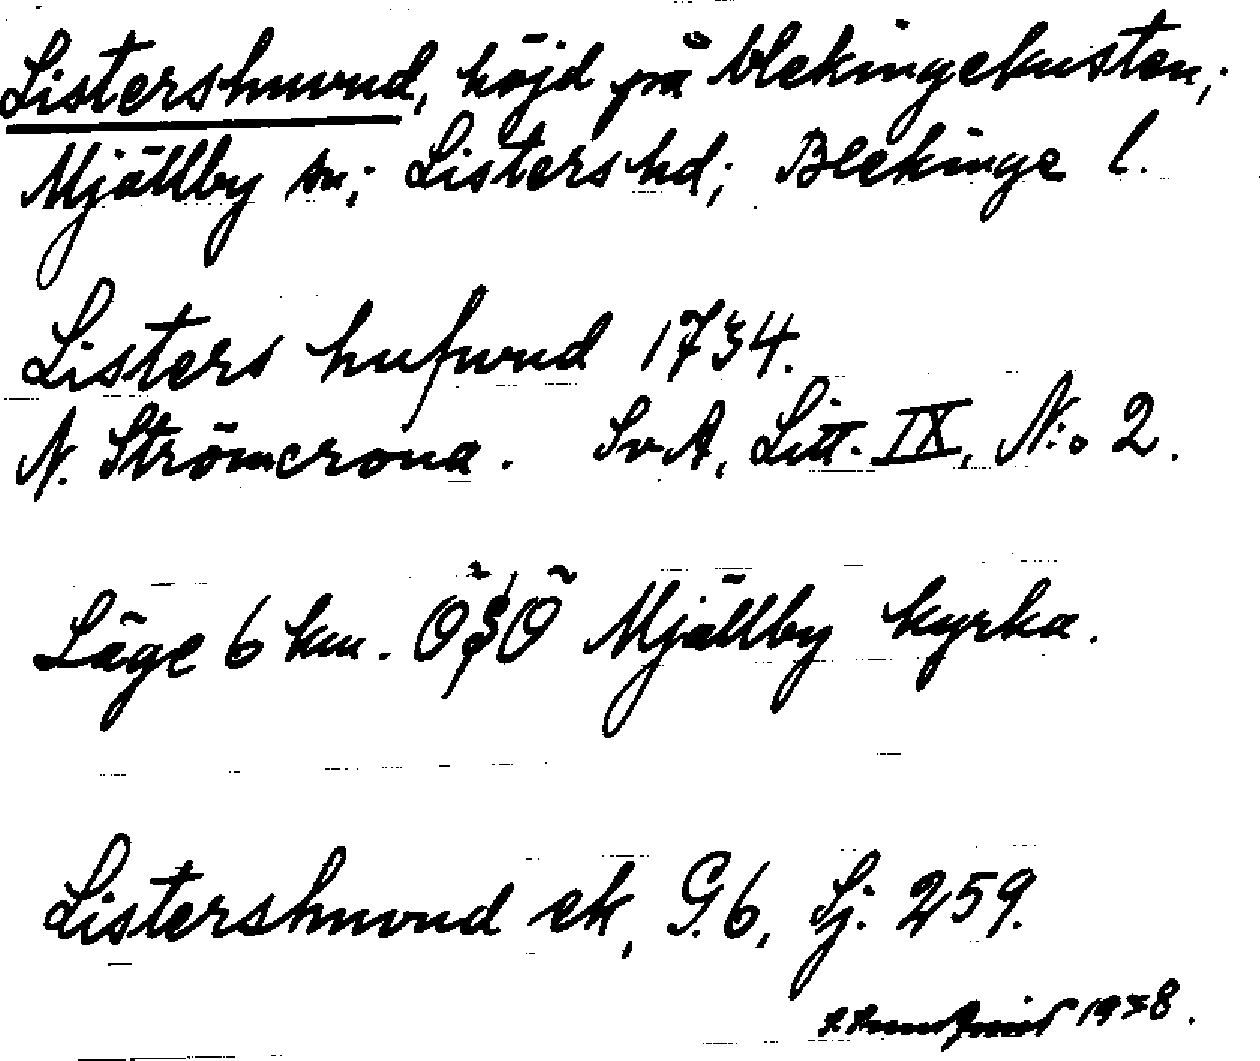 Listershuvud, höjd på Blekingekusten;
Mjällby sn; Listers hd; Blekinge l.
Listers hufwud 1734.
N. Strömcrona. SvA, Litt. IX, N:o 2.
Läge 6 km. ÖSÖ Mjällby kyrka.
Listershuvud ek, G.6, Sj. 259.
1938.